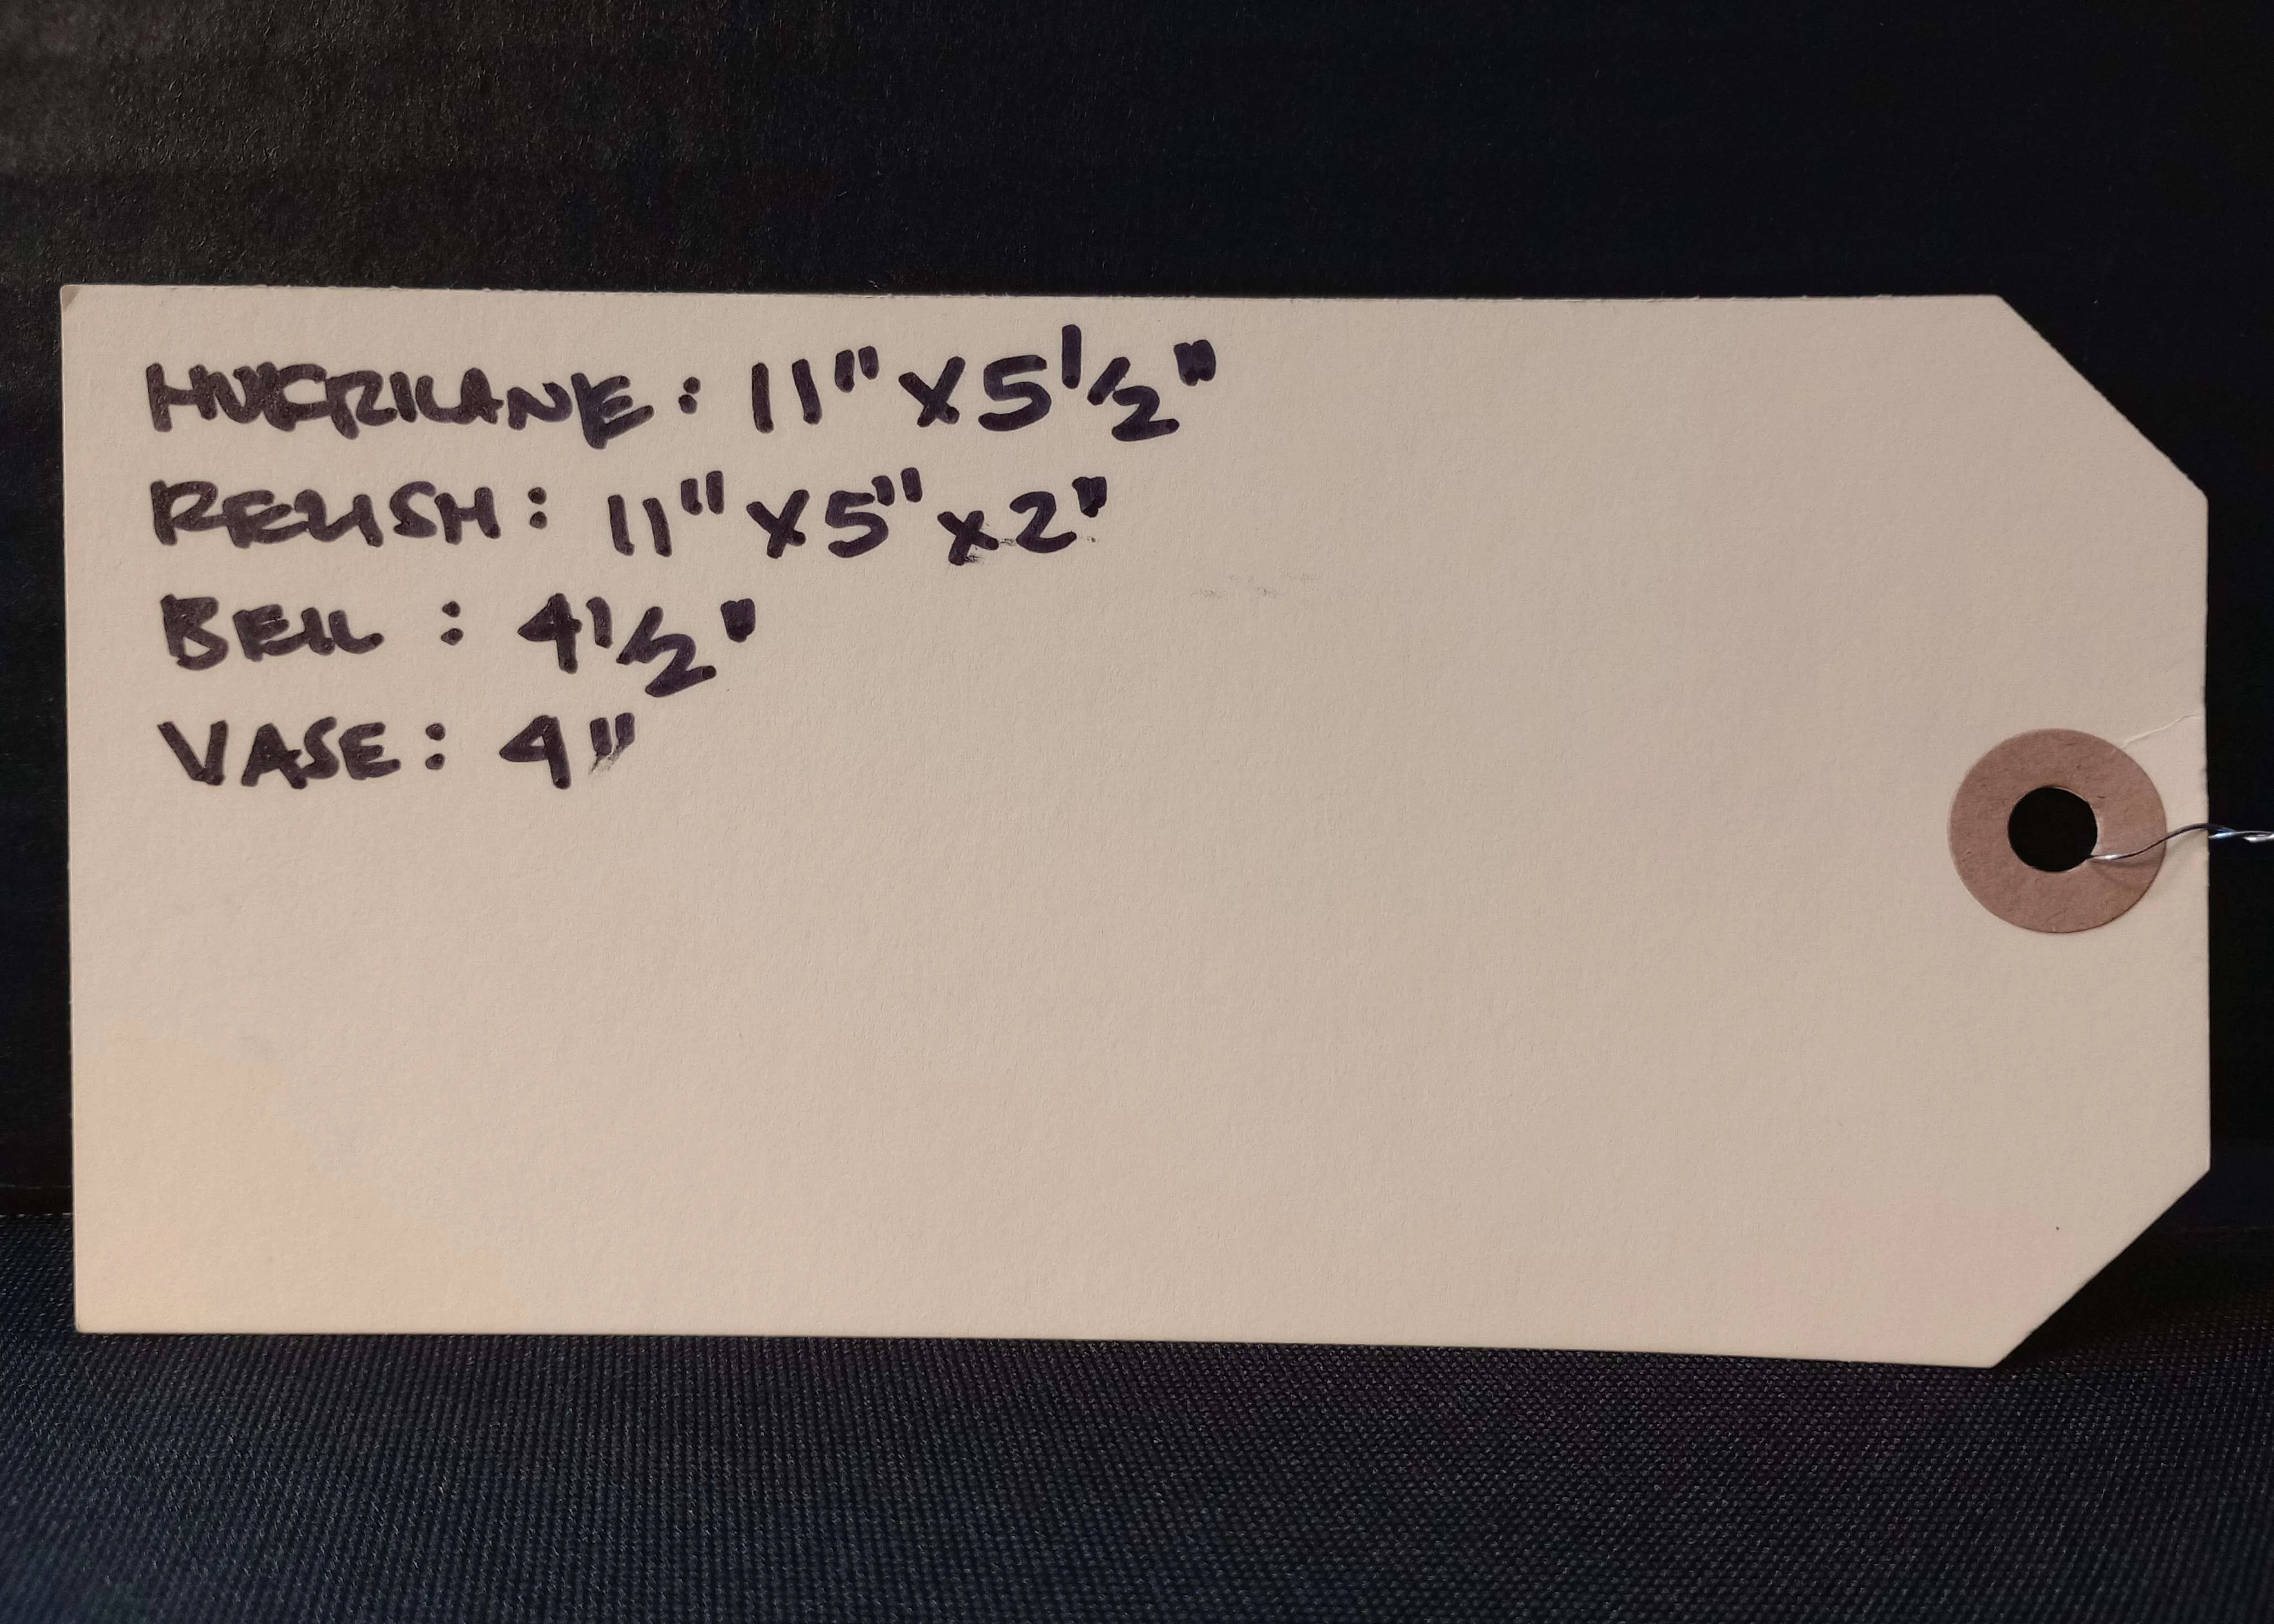 HURRICANE: 11" X 5 1/2"
RELISH: 11" X 5" X 2"
BELL : 4 1/2"
VASE: 4"